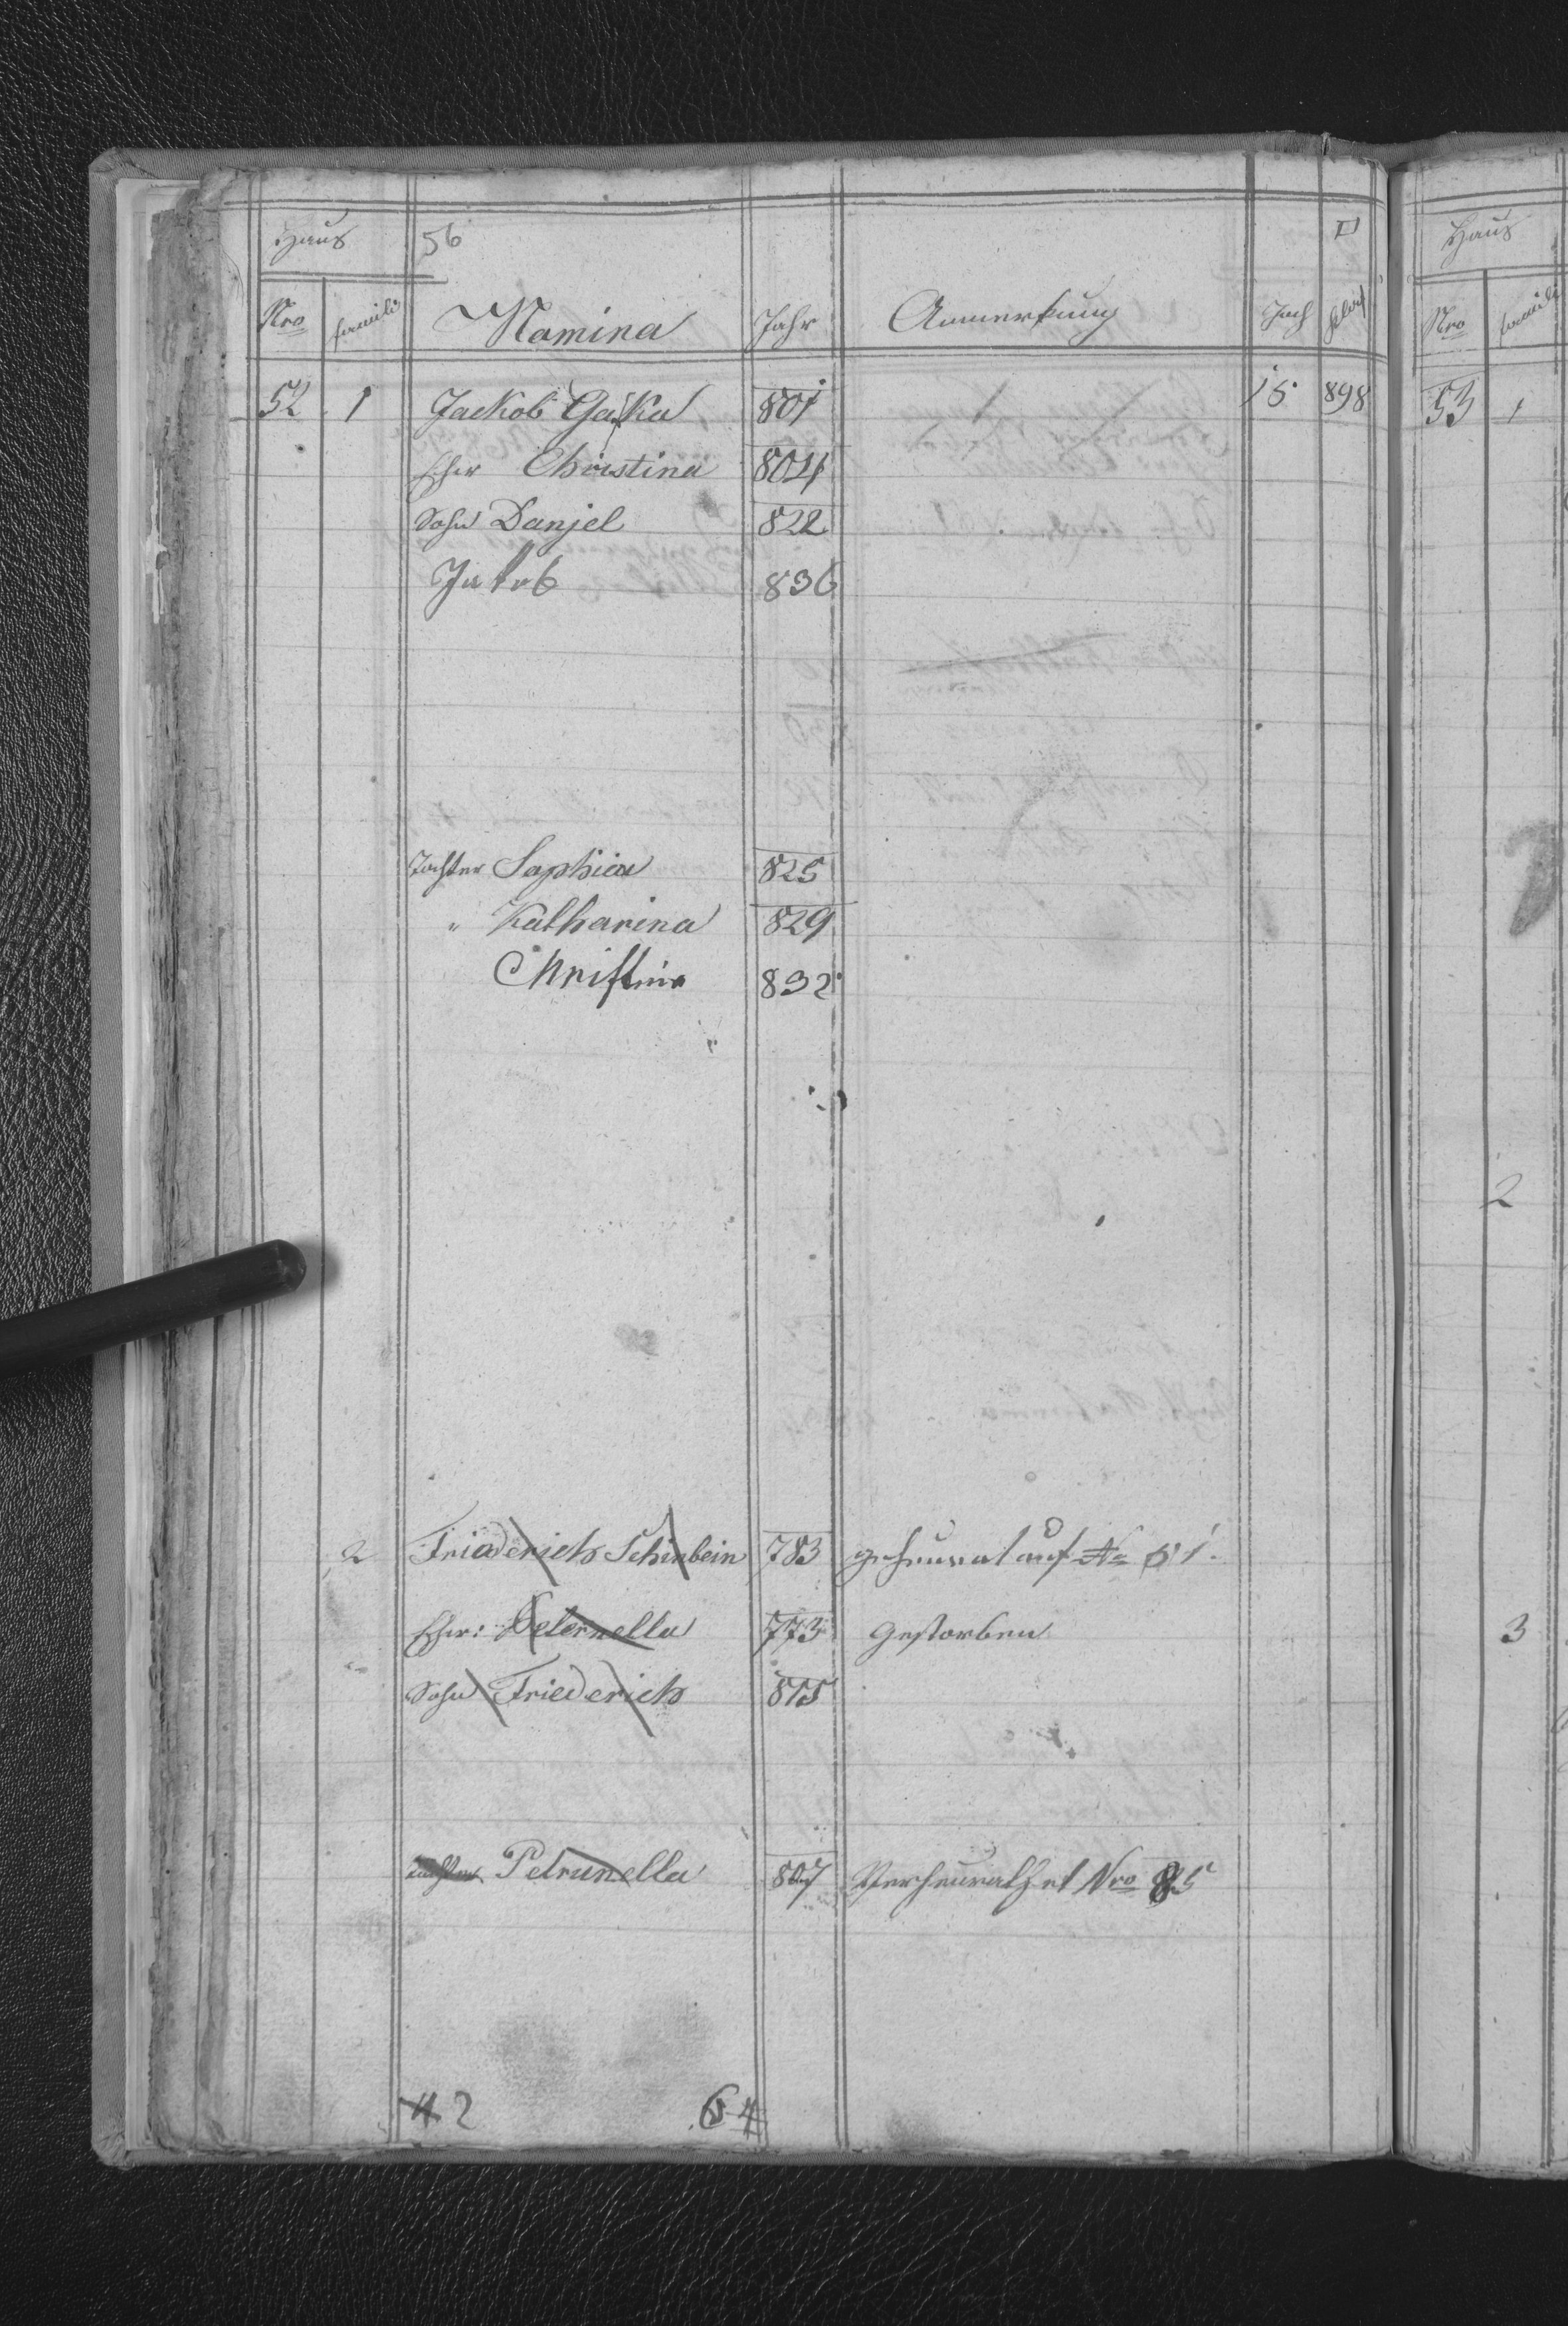 Haus 56 □
Nro Famili Namina Jahr Anmerkung Joch
52 1 Jackob Gaka 801 15 898
Eher Christina 804
Sohn Danjel 822
Jakob 836
Tochter Sophia 825
" Katharina 829
Christina 832
2 Friederich Schinbein 783 geheurat auf No 51.
Eher: Peternella 773 gestorben
Sohn Friederich 815
Tochter Petrunella 807 Verheurathet Nro 85
4 2 6 4
Haus
Nro Famili
53 1
2
3